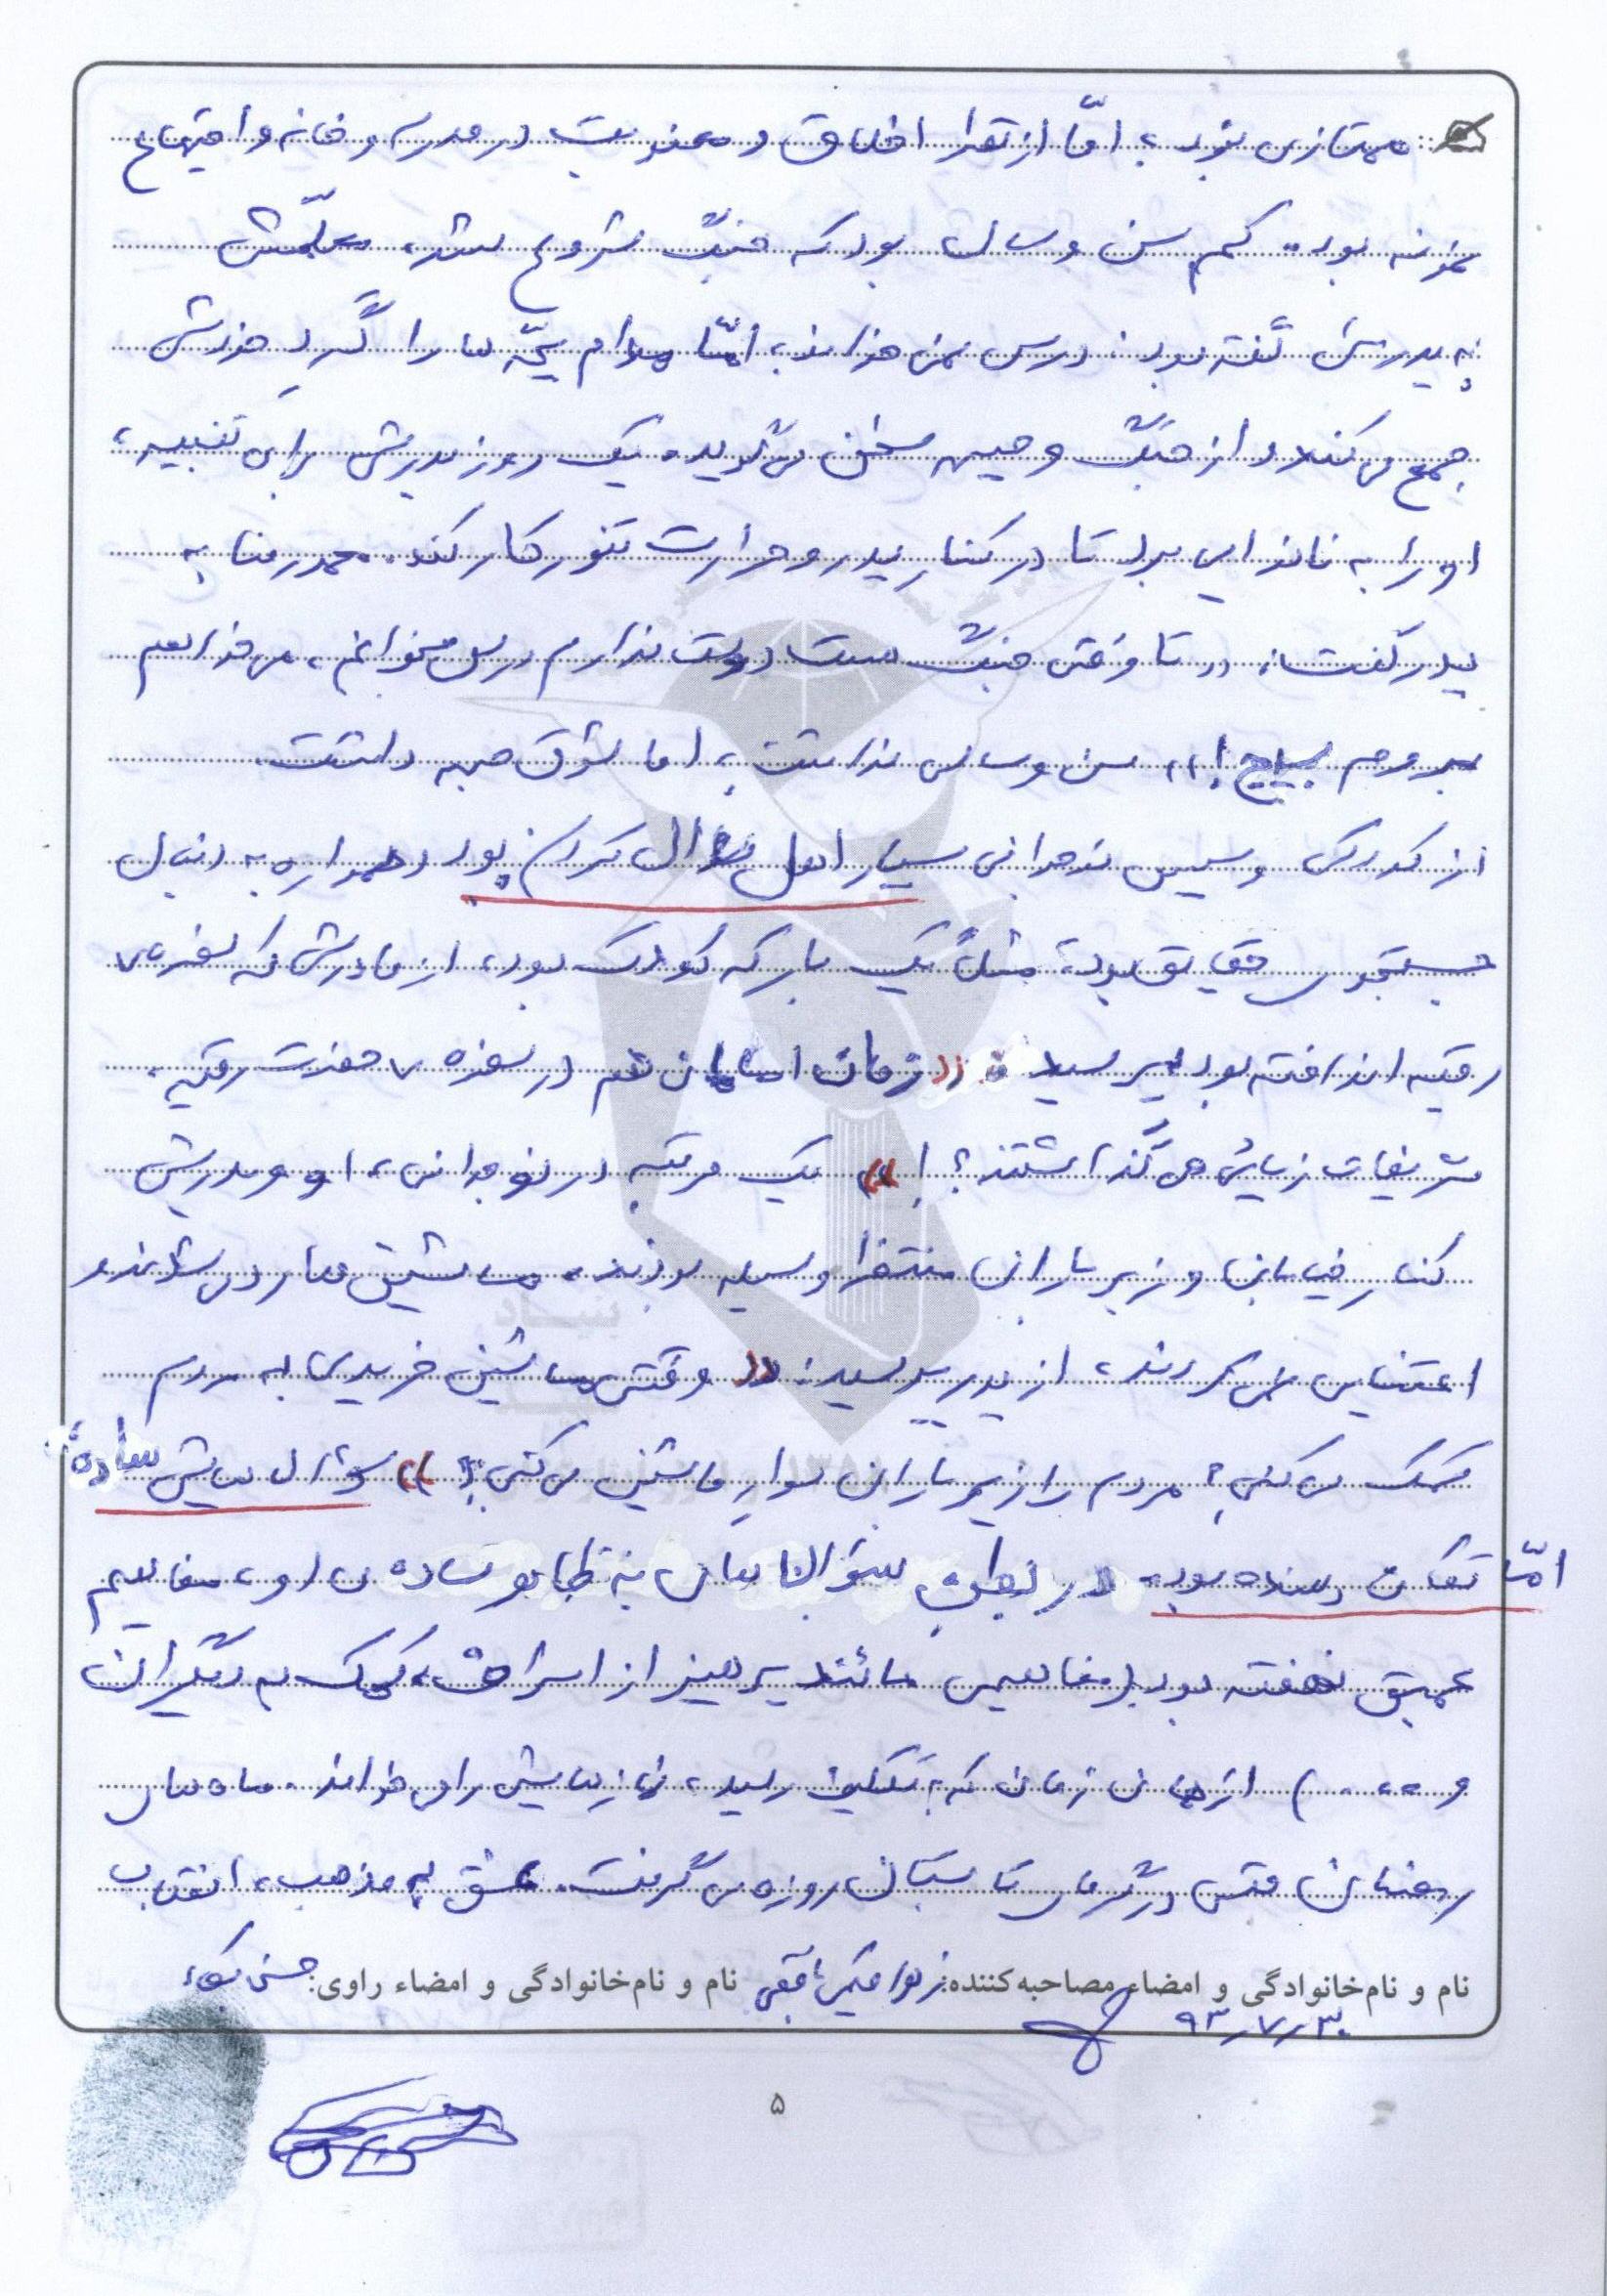 ممتازی نبود؛ امّا از نظر اخلاق و معنویت در مدرسه و خانه و اجتماع
نمونه بود. کم سن و سال بود که جنگ شروع شد، معلّمش
به پدرش گفته بود: درس نمی‌خواند، امّا مدام بچّه‌ها را گردِ خودش
جمع می‌کند و از جنگ و جبهه سخن می‌گوید. یک روز پدرش برای تنبیه،
او را به نانوایی برد تا در کنار پدر و حرارت تنور کار کند. محمدرضا به
پدر گفت: «تا وقتی جنگ هست دوست ندارم درس بخوانم، می‌خواهم
بروم بسیج!» سن و سالی نداشت، اما شوق جبهه داشت.
از کودکی و سپس نوجوانی بسیار اهل سؤال کردن بود و همواره به دنبال
جستجوی حقایق بود، مثلاً یک بار که کودک بود، از مادرش که سفره‌ی
رقیه انداخته بود پرسید: «زمان امامان هم در سفره‌ی حضرت رقیه
تشریفات زیادی می‌گذاشتند؟!» یک مرتبه در نوجوانی، او و پدرش
کنار خیابان و زیر باران منتظر وسیله بودند. ماشین‌ها رد می‌شدند و
اعتنایی نمی‌کردند، از پدر پرسید: «وقتی ماشین خریدی به مردم
کمک می‌کنی؟ مردم را زیر باران سوارِ ماشین می‌کنی؟» سؤال‌هایش ساده
امّا تکان دهنده بود. در بطن سؤال‌های به ظاهر ساده‌ی او، مفاهیم
عمیق نهفته بود (مفاهیمی مانند پرهیز از اسراف، کمک به دیگران
و ....) از همان زمان که به تکلیف رسید، نمازهایش را می‌خواند. ماه‌های
رمضان حتی در گرمای تابستان روزه می‌گرفت. عشق به مذهب، انقلاب
نام و نام‌خانوادگی و امضاء مصاحبه‌کننده: زهرا نام و نام‌خانوادگی و امضاء راوی: حسن
۹۳/۷/۳۰
۵